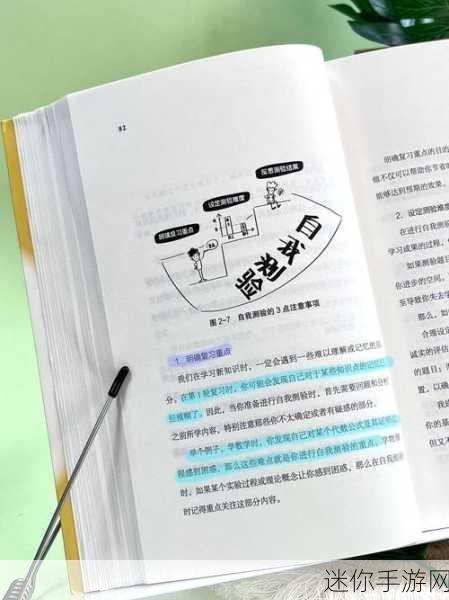 82
反思测验结果
设定测验难度
明确复习重点
自我测验
图 2-7 自我测验的 3 点注意事项
1. 明确复习重点
我们在学习新知识时，一定会遇到一些难以理解或记忆的部
分。在第 1 轮复习时，你可能会发现自己对于某些知识点的记忆已
经模糊了。因此，当你准备进行自我测验时，首先需要回顾和分析
之前所学内容，特别注意那些你不太确定或者有疑惑的部分。
举个例子，学数学时，你发现自己对某个代数公式及其证明过
程感到困惑，那么这些难点就是你进行自我测验的重点。学物理
时，如果某个实验过程或理论概念让你感到困惑，那么在自我测验
时记得重点关注这部分内容。
明确复习重点的目的
仅可以帮助你节省
能够达到预期的效果。
2. 设定测验难度
在进行自我测
学习成果的过程，
如果测验题
你进步的空间，
至导致你失去学
那么，如
合理设
诚实的评估
的题目；
置，以确
但又不
迷你手游网